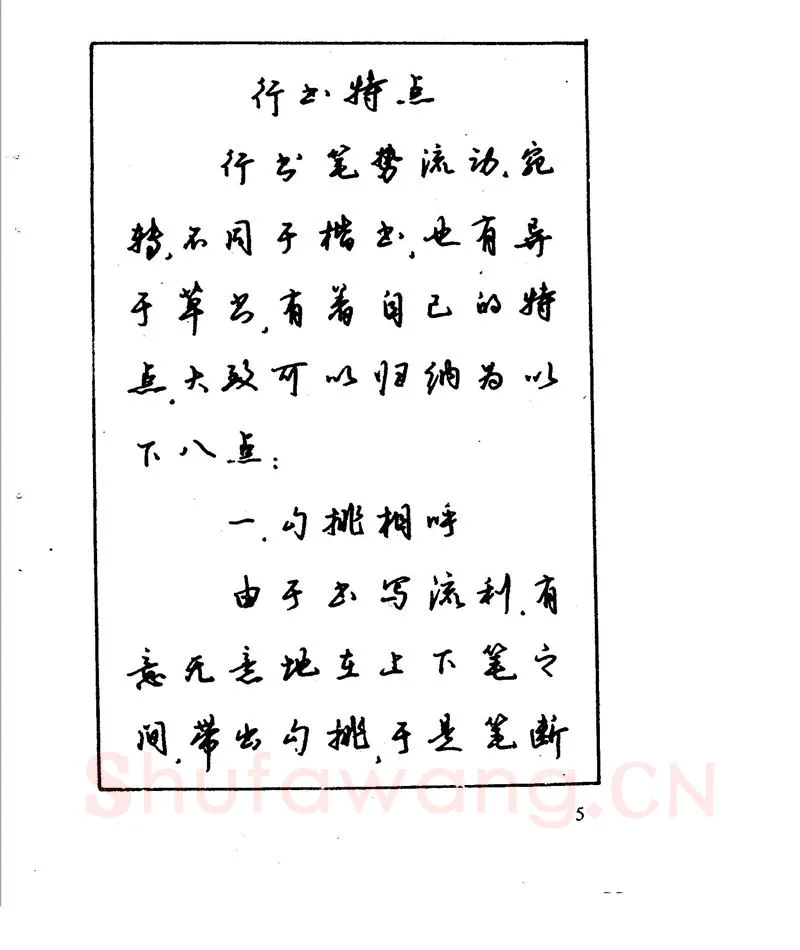 行书特点
行书笔势流动、宛
转，不同于楷书，也有异
于草书，有着自己的特
点，大致可以归纳为以
下八点：
一、勾挑相呼
由于书写流利，有
意无意地在上下笔之
间，带出勾挑，于是笔断
Shufawang.CN
5